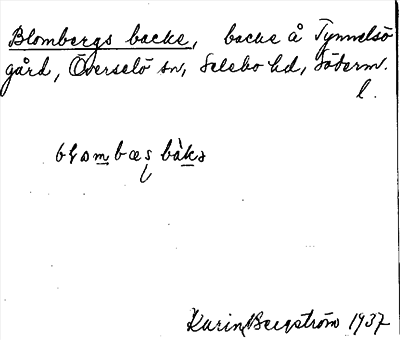 Blombergs backe, backe å Tynnelsö
gård, Överselö sn, Selebo hd, Söderm.
l.
blombæș bàkə
Karin Bergström 1937